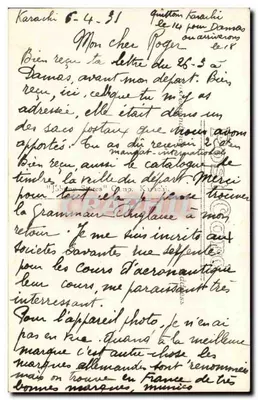 Karachi 6-4.31
quittons Karachi
le 14 pour Damas
ou arriverons
le 18
Mon cher Roger
Bien reçu ta lettre du 26-3 à
Damas, avant mon depart. Bien
reçu, ici, celle que tu m'y as
adressée, elle était dans un
des sacs postaux que nous avons
apportés. Tu as du recevoir 2
Bien reçu aussi le catalogue de
timbre, la veille du départ. Merci
pour trouver
la Grammaire à mon
retour. Je me suis inscrits au
Societes savantes
pour les cours d'aeronautique
leur cours, me paraissant très
interressant.
Pour l'appareil photo, je n'en ai
pas en vue. Quand à la meilleure
marque c'est autre chose. les
marques allemandes sont renommées
mais on trouve en France de très
bonnes marques, munies